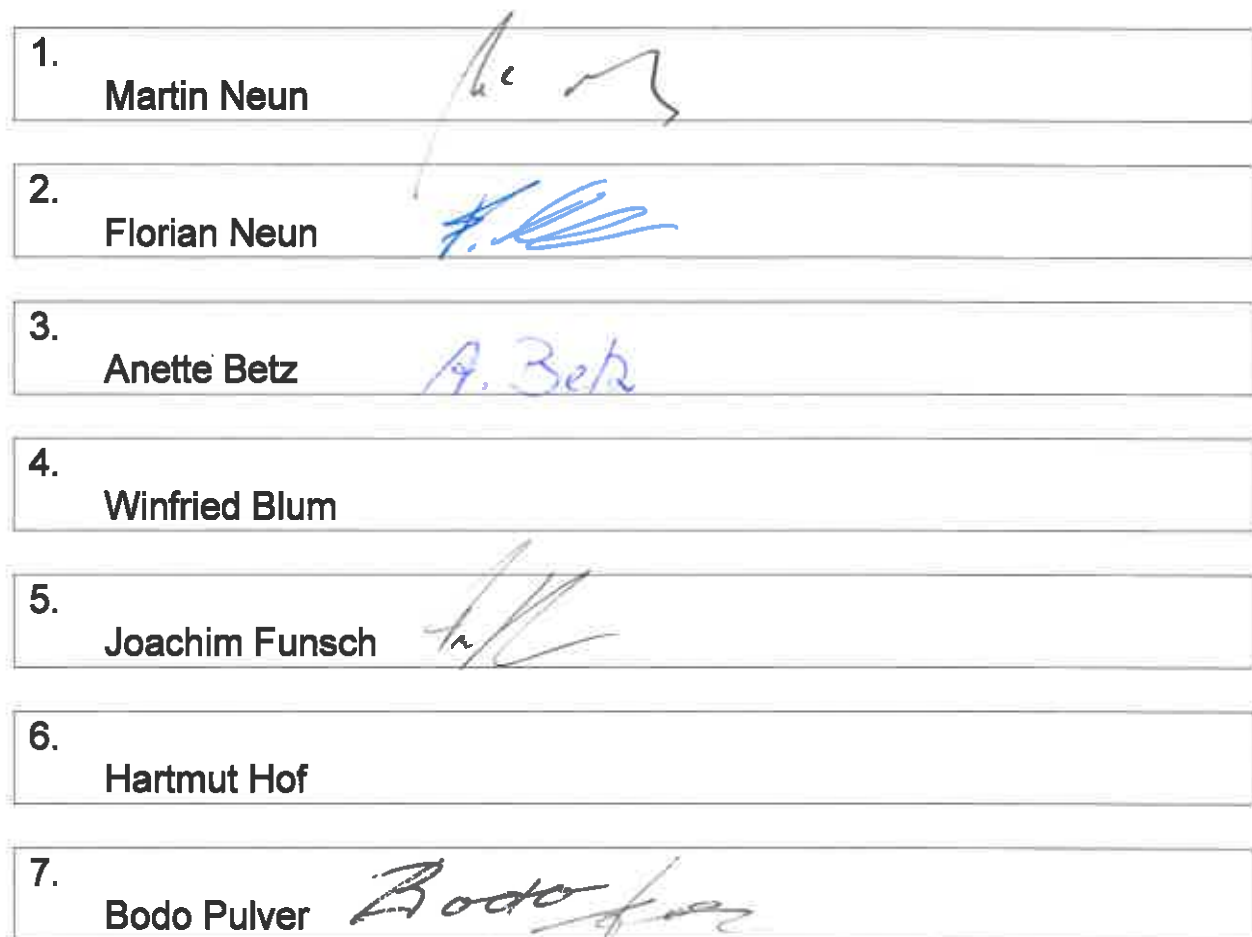 1.
Martin Neun
2.
Florian Neun
3.
Anette Betz A. Betz
4.
Winfried Blum
5.
Joachim Funsch
6.
Hartmut Hof
7.
Bodo Pulver Bodo